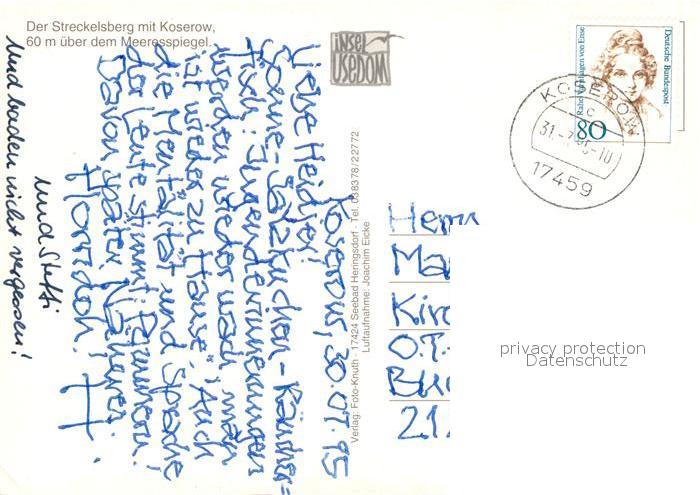 Der Streckelsberg mit Koserow,
60 m über dem Meeresspiegel.
INSEL
USEDOM
Deutsche Bundespost
Rahel Varnhagen von Ense
80
KOSEROW
c
31.-7.95-10
17459
Verlag: Foto-Knuth · 17424 Seebad Heringsdorf · Tel. 038378/22772
Luftaufnahme: Joachim Eicke
Koserow, 30.07.95
Liebe Heidler!
Sonne-Salzkuchen-Räucher=
fisch: Jugenderinnerungen
werden wieder wach man
ist wieder zu Hause". Auch
die Mentalität und Sprache
der Leute stimmt. Prima!
Davon später Näheres.
H
und Steffi
Und baden nicht vergessen!
Herrn
Ma
Kirc
OT.
Bu
21
privacy protection
Datenschutz